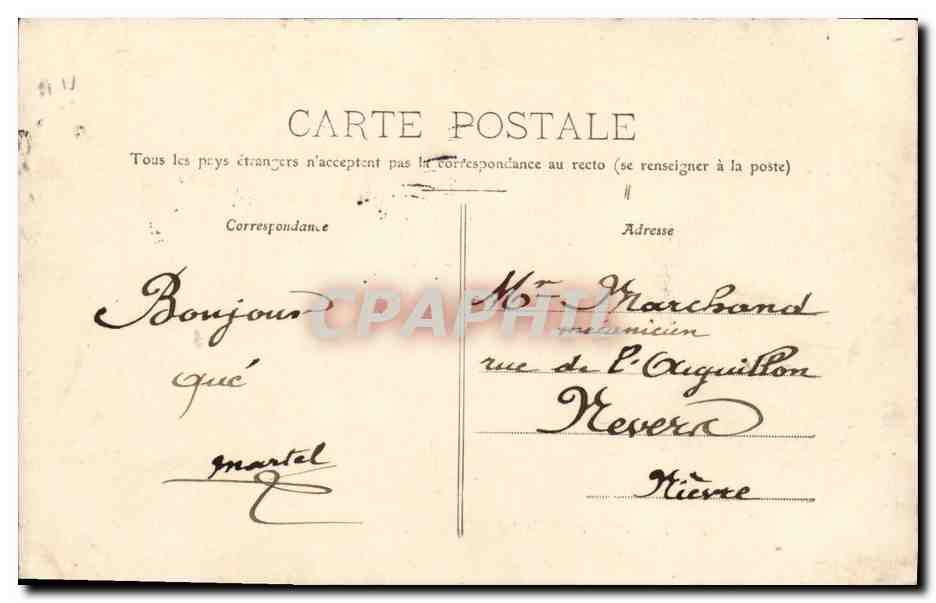 CARTE POSTALE
Tous les pays étrangers n'acceptent pas la correspondance au recto (se renseigner à la poste)
Correspondance
Bonjour
Martel
Adresse
Mr Marchand
mécanicien
rue de l'Aiguillon
Nevers
Nièvre
CPAPHIL